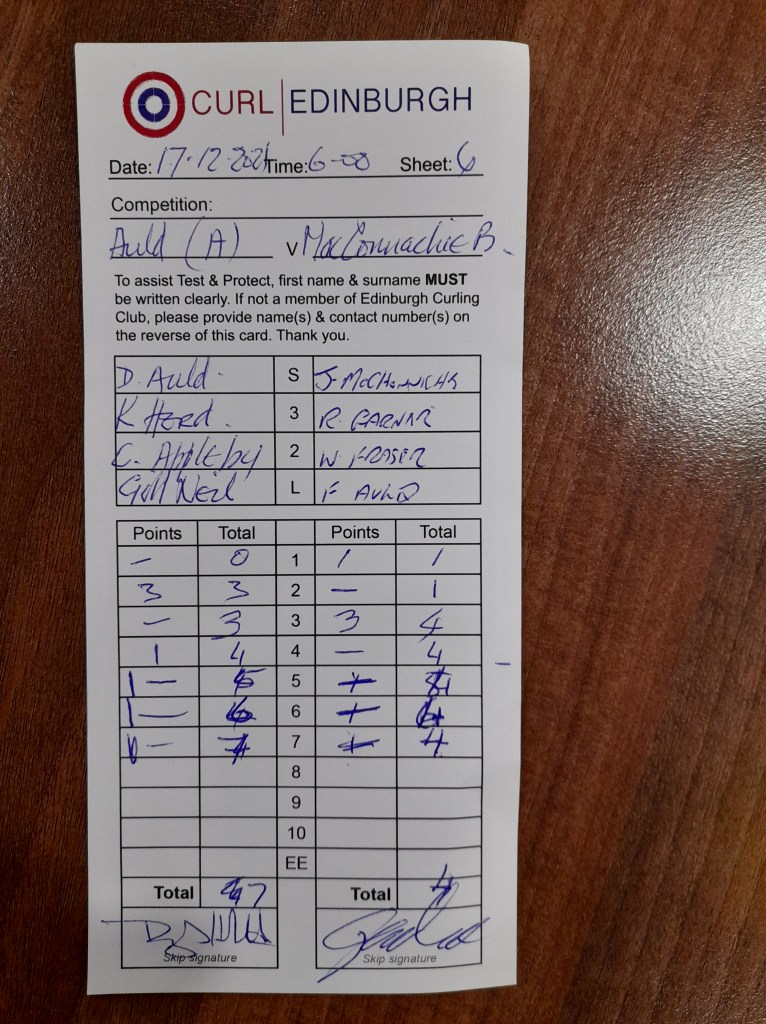 CURL EDINBURGH
Date: 17·12·2021 Time: 6-00 Sheet: 6
Competition:
Auld (A) v MacConnachie B.
To assist Test & Protect, first name & surname MUST
be written clearly. If not a member of Edinburgh Curling
Club, please provide name(s) & contact number(s) on
the reverse of this card. Thank you.
D. Auld. S
K HERD. 3 R.
C. Appleby 2 W FRASER
Gill Neil L F AULD
Points Total Points Total
— 0 1 1 1
3 3 2 — 1
— 3 3 3 4
1 4 4 — 4
1 5 5 —
1 6 6 — 4
7 7 — 4
8
9
10
EE
Total 7 Total 4
Skip signature Skip signature